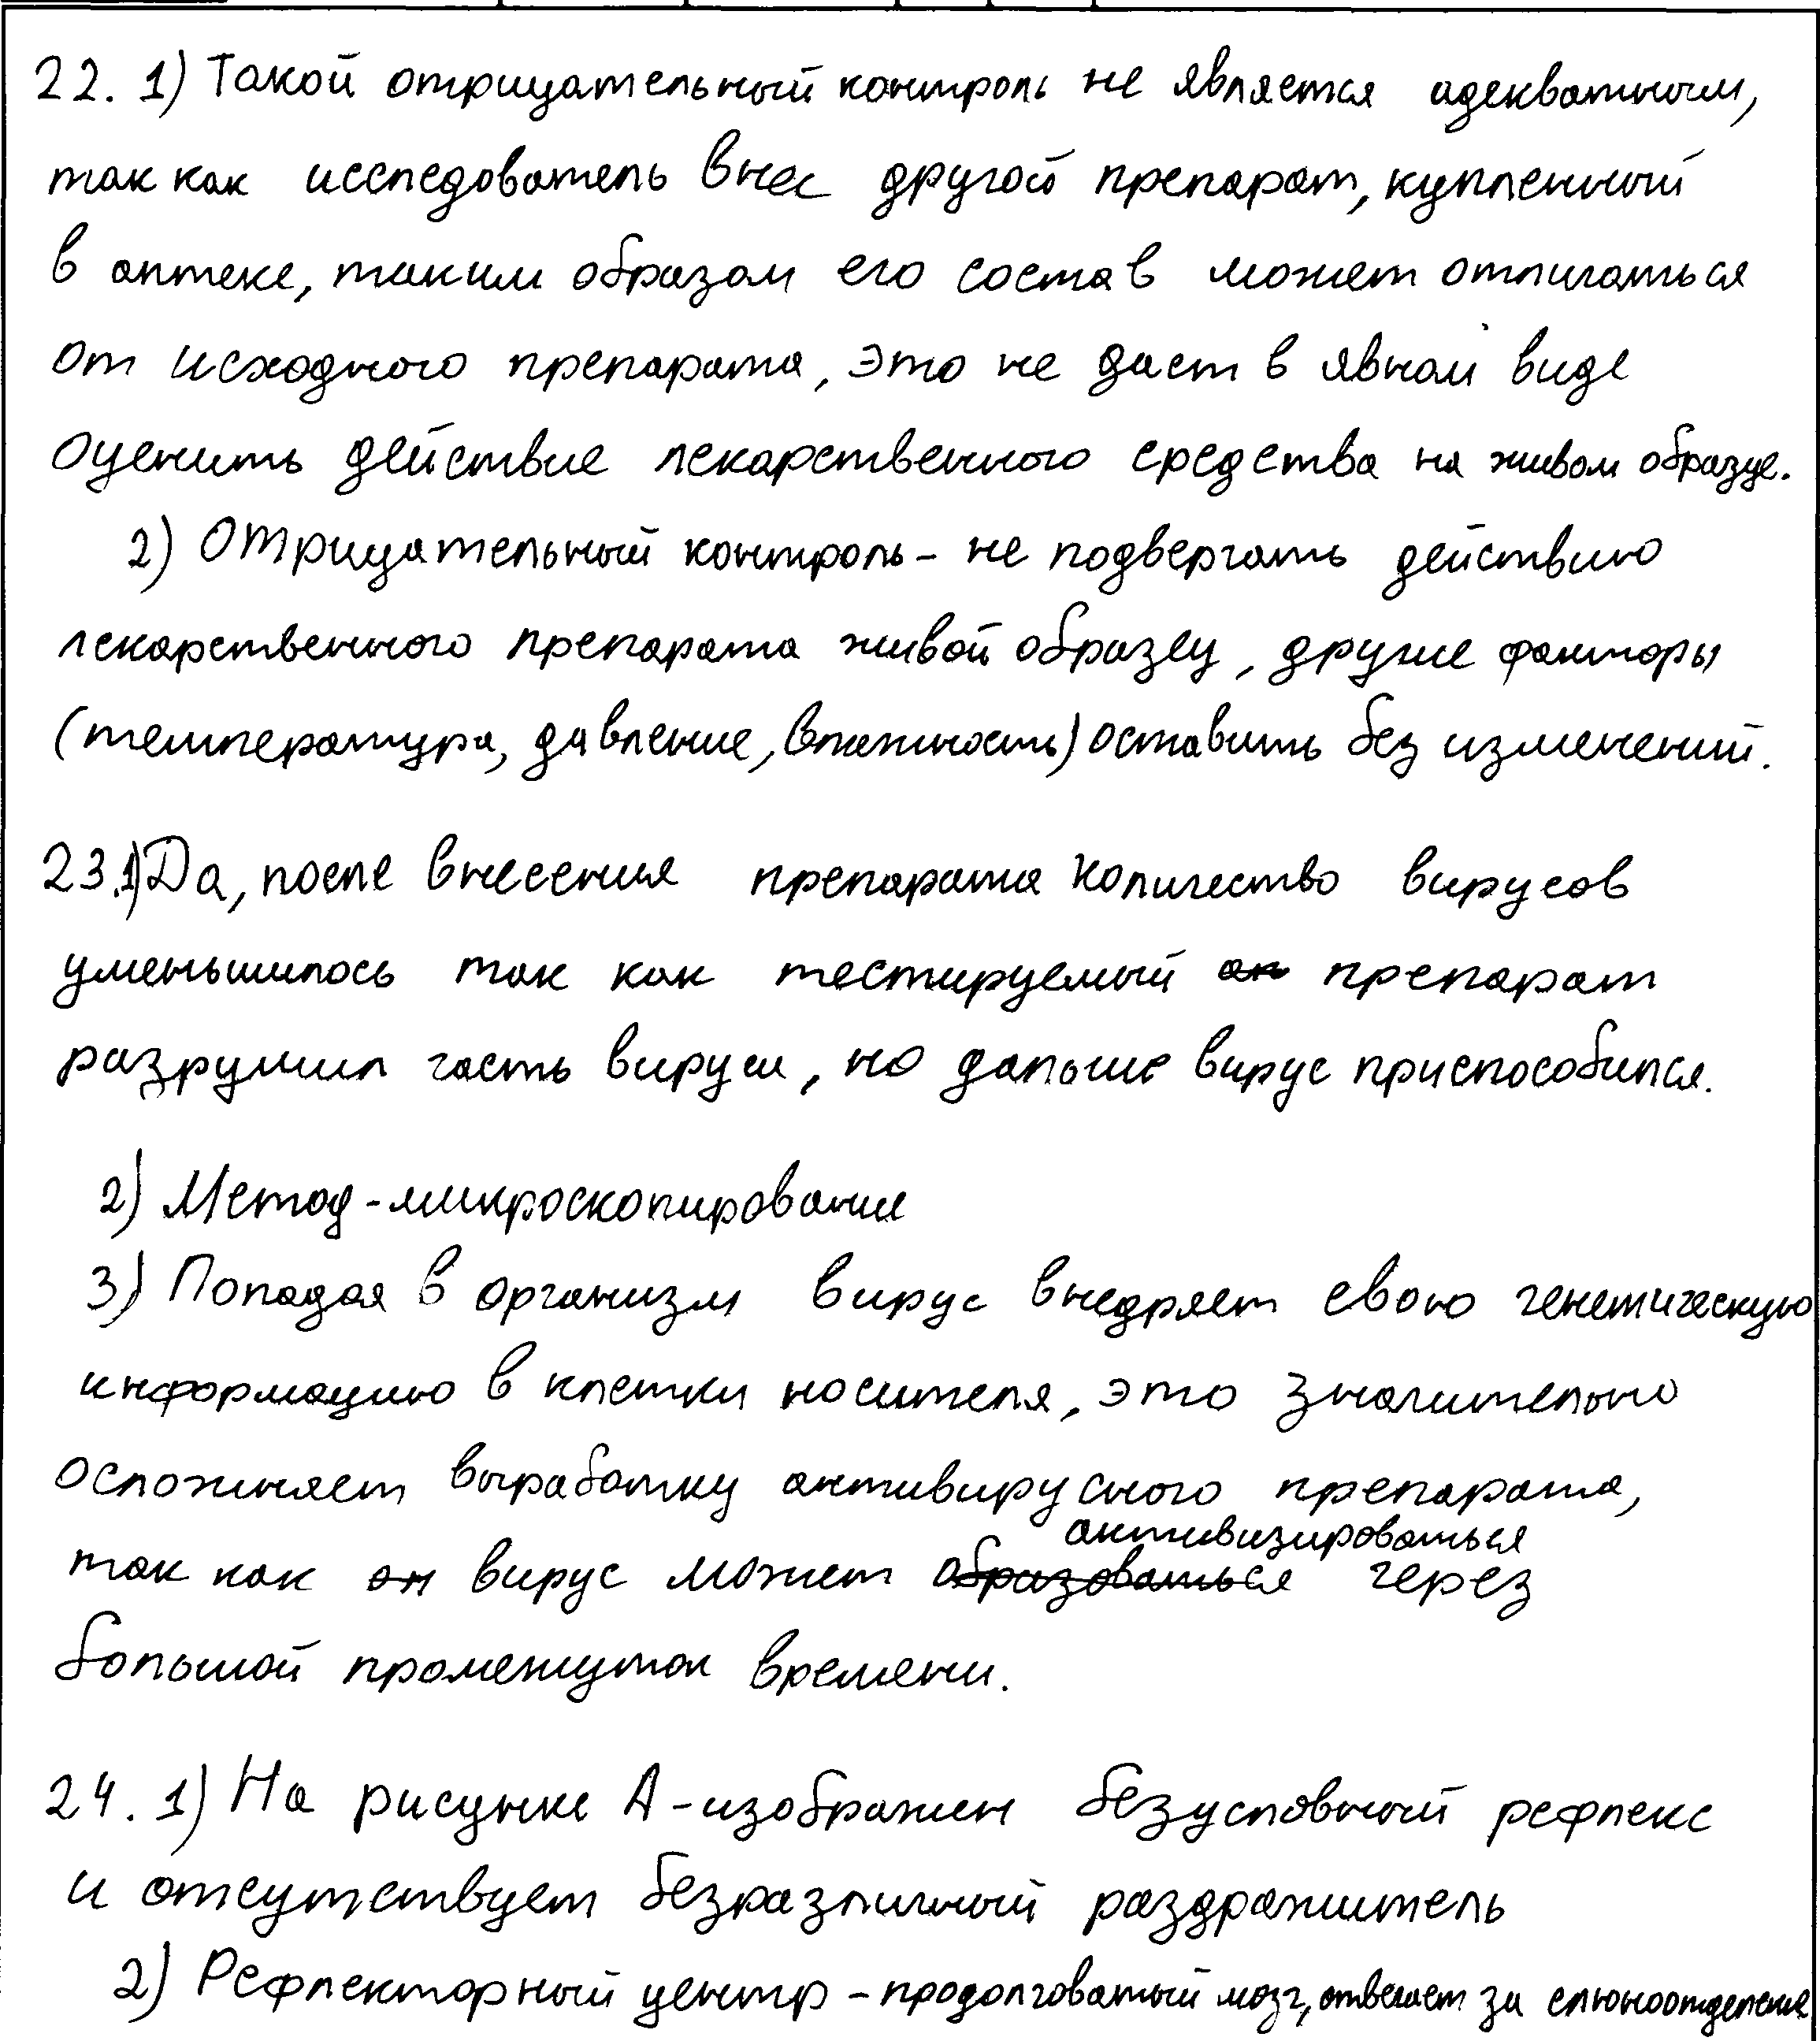 22. 1) Такой отрицательный контроль не является адекватным,
так как исследователь внес другой препарат, купленный
в аптеке, таким образом его состав может отличаться
от исходного препарата, это не даст в явном виде
оценить действие лекарственного средства на живом образце.
2) Отрицательный контроль - не подвергать действию
лекарственного препарата живой образец, другие факторы
(температура, давление, влажность) оставить без изменений.
23.1) Да, после внесения препарата количество вирусов
уменьшилось так как тестируемый препарат
разрушил часть вируса, но дальше вирус приспособился.
2) Метод - микроскопирование
3) Попадая в организм вирус внедряет свою генетическую
информацию в клетки носителя, это значительно
осложняет выработку антивирусного препарата,
активизироваться
так как он вирус может образоваться через
большой промежуток времени.
24. 1) На рисунке А - изображен безусловный рефлекс
и отсутствует безразличный раздражитель
2) Рефлекторный центр - продолговатый мозг, отвечает за слюноотделение